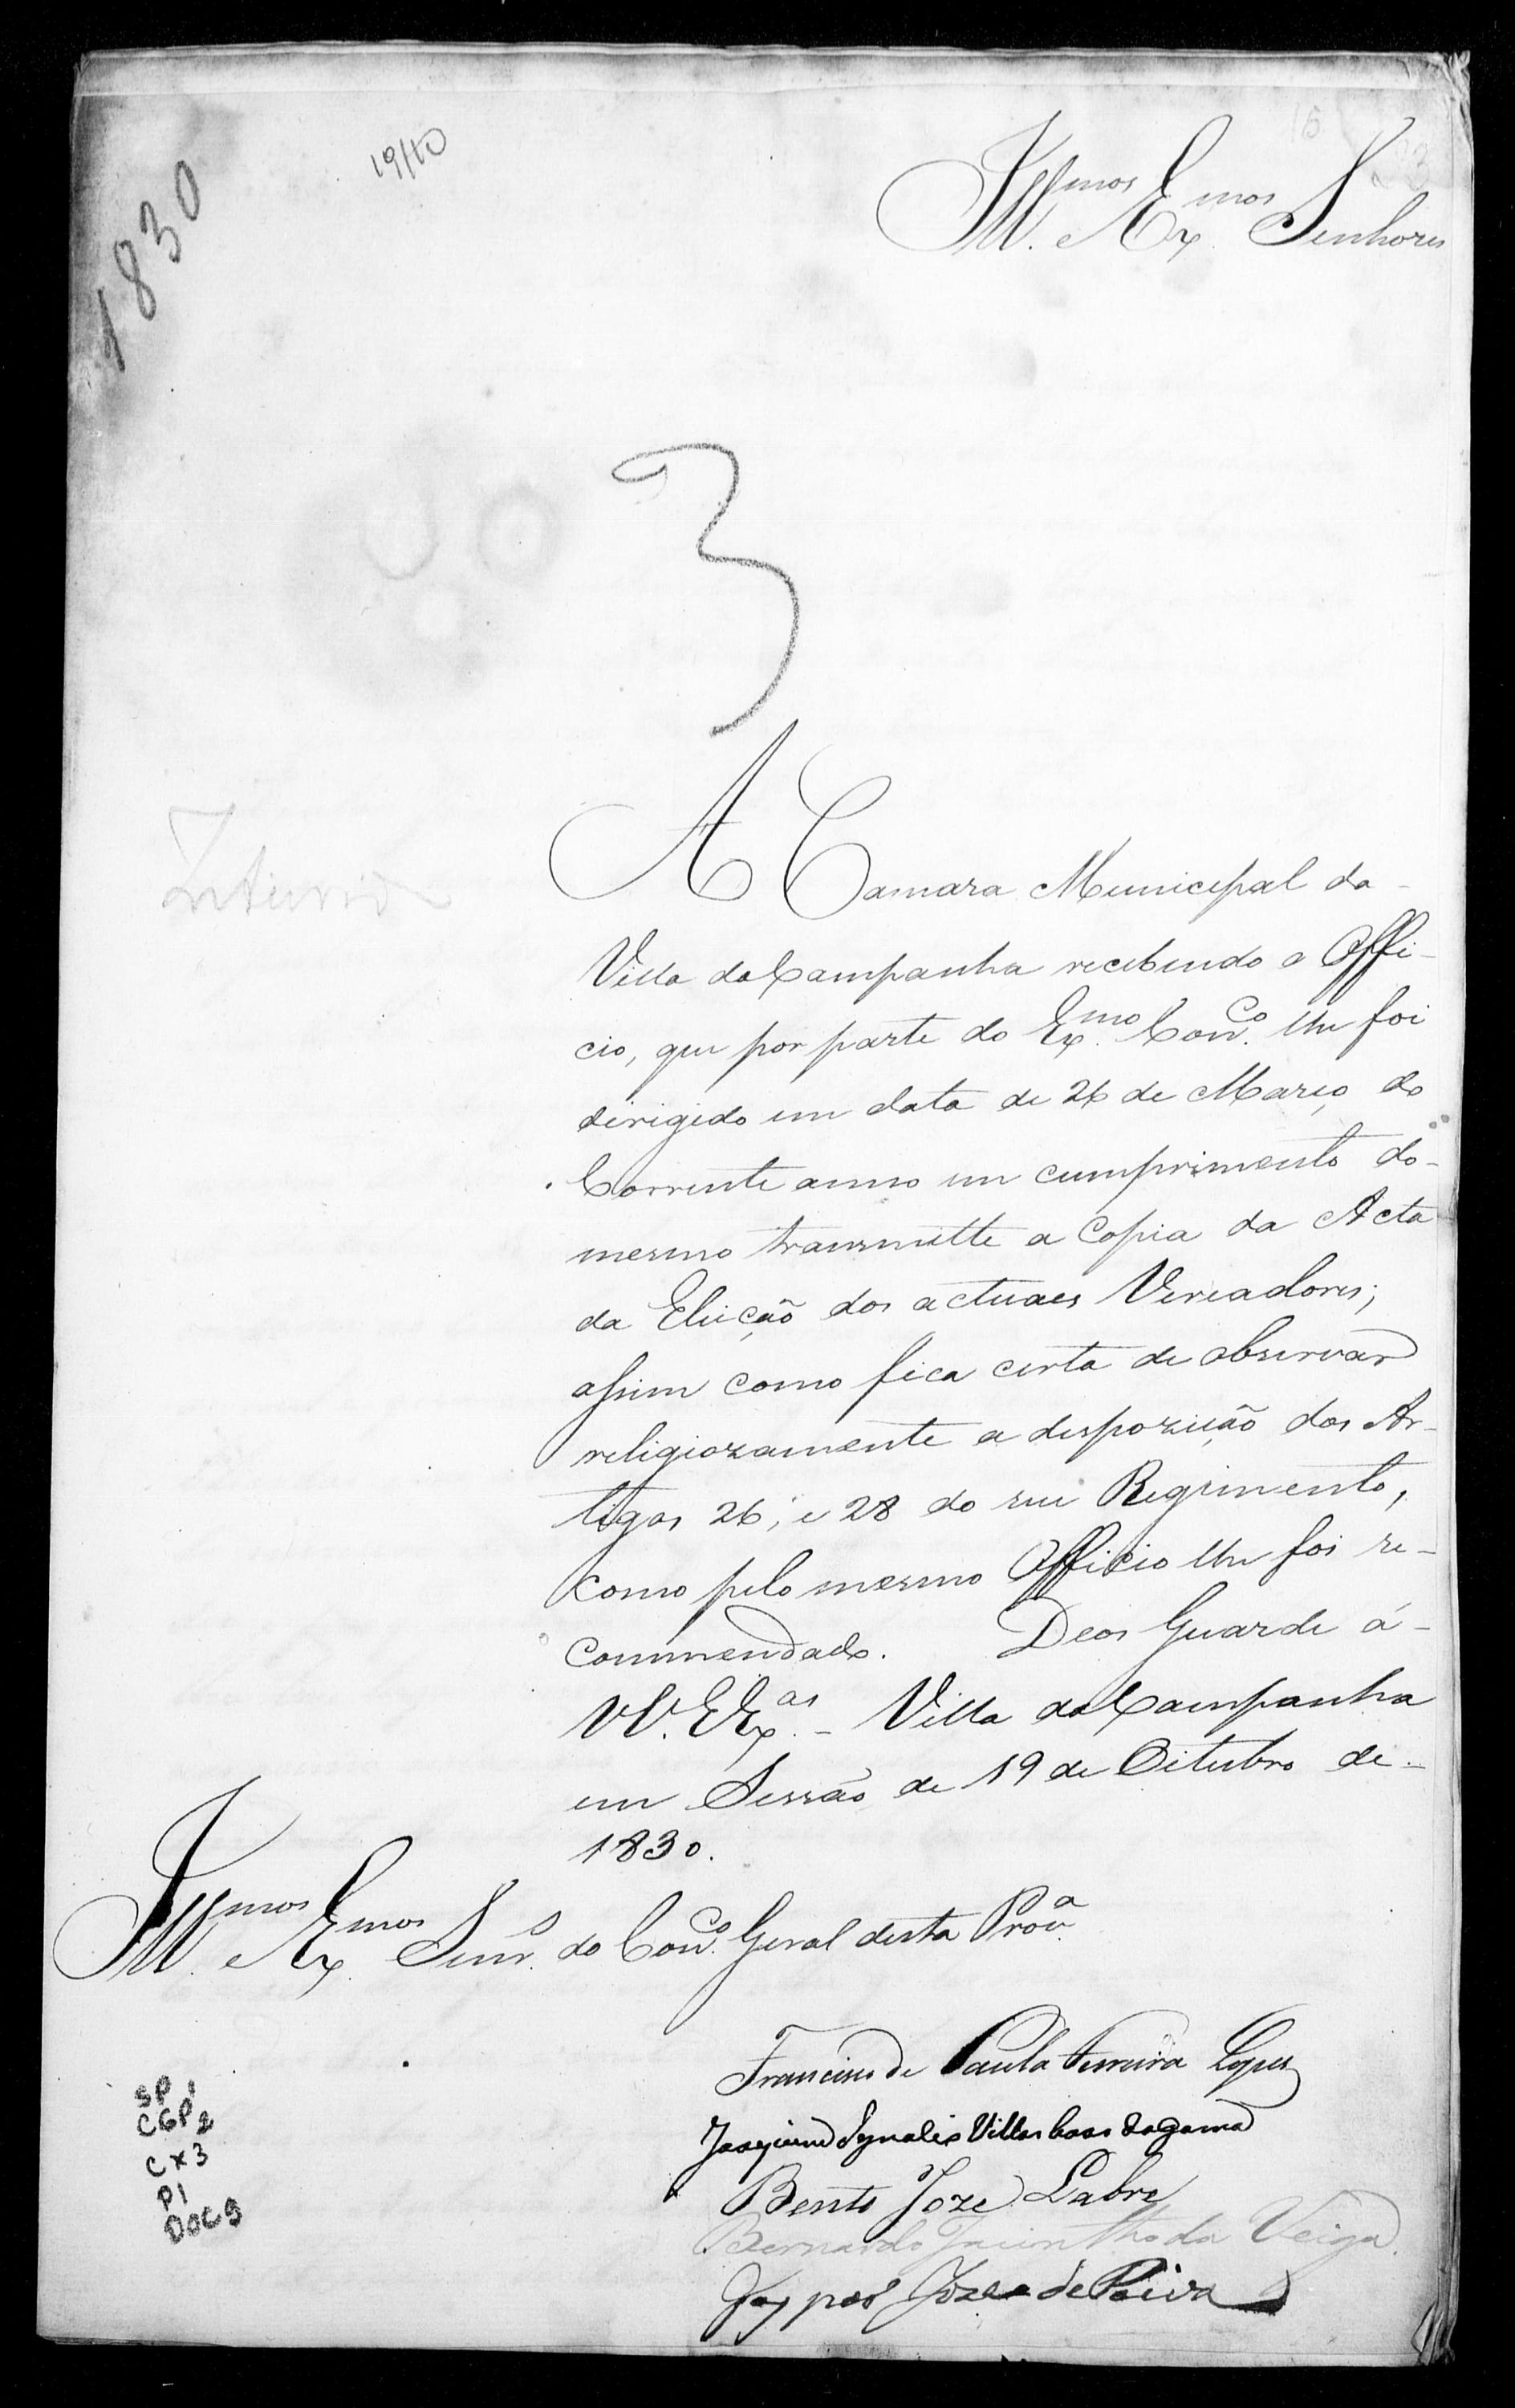 1830
19/10
Ill.mos e Ex.mos Senhores
3
A Camara Municipal da
Villa da Campanha recebendo o Offi-
cio, que por parte do Ex.mo Con.co lhe foi
dirigido em data de 26 de Março do
Corrente anno em cumprimento do
mesmo transmitte a Copia da Acta
da Eleição dos actuaes Vereadores;
assim como fica certa de observar
religiozamente a dispozição dos Ar-
tigos 26, e 28 do seu Regimento,
como pelo mesmo Officio lhe foi re-
commendado. Deos Guarde á
VV. EEx.as - Villa da Campanha
em Sessão de 19 de Oitubro de
1830.
Ill.mos e Ex.mos Senr.s do Con.co Geral desta Prov.a
Francisco de Paula Ferreira Lopes
Joaquim Ignacio Villas boas da gama
Bento Joze Labre
Bernardo Jacintho da Veiga
Gaspar Joze de Paiva
SP 1
CGP 2
CX3
P1
DOC 9